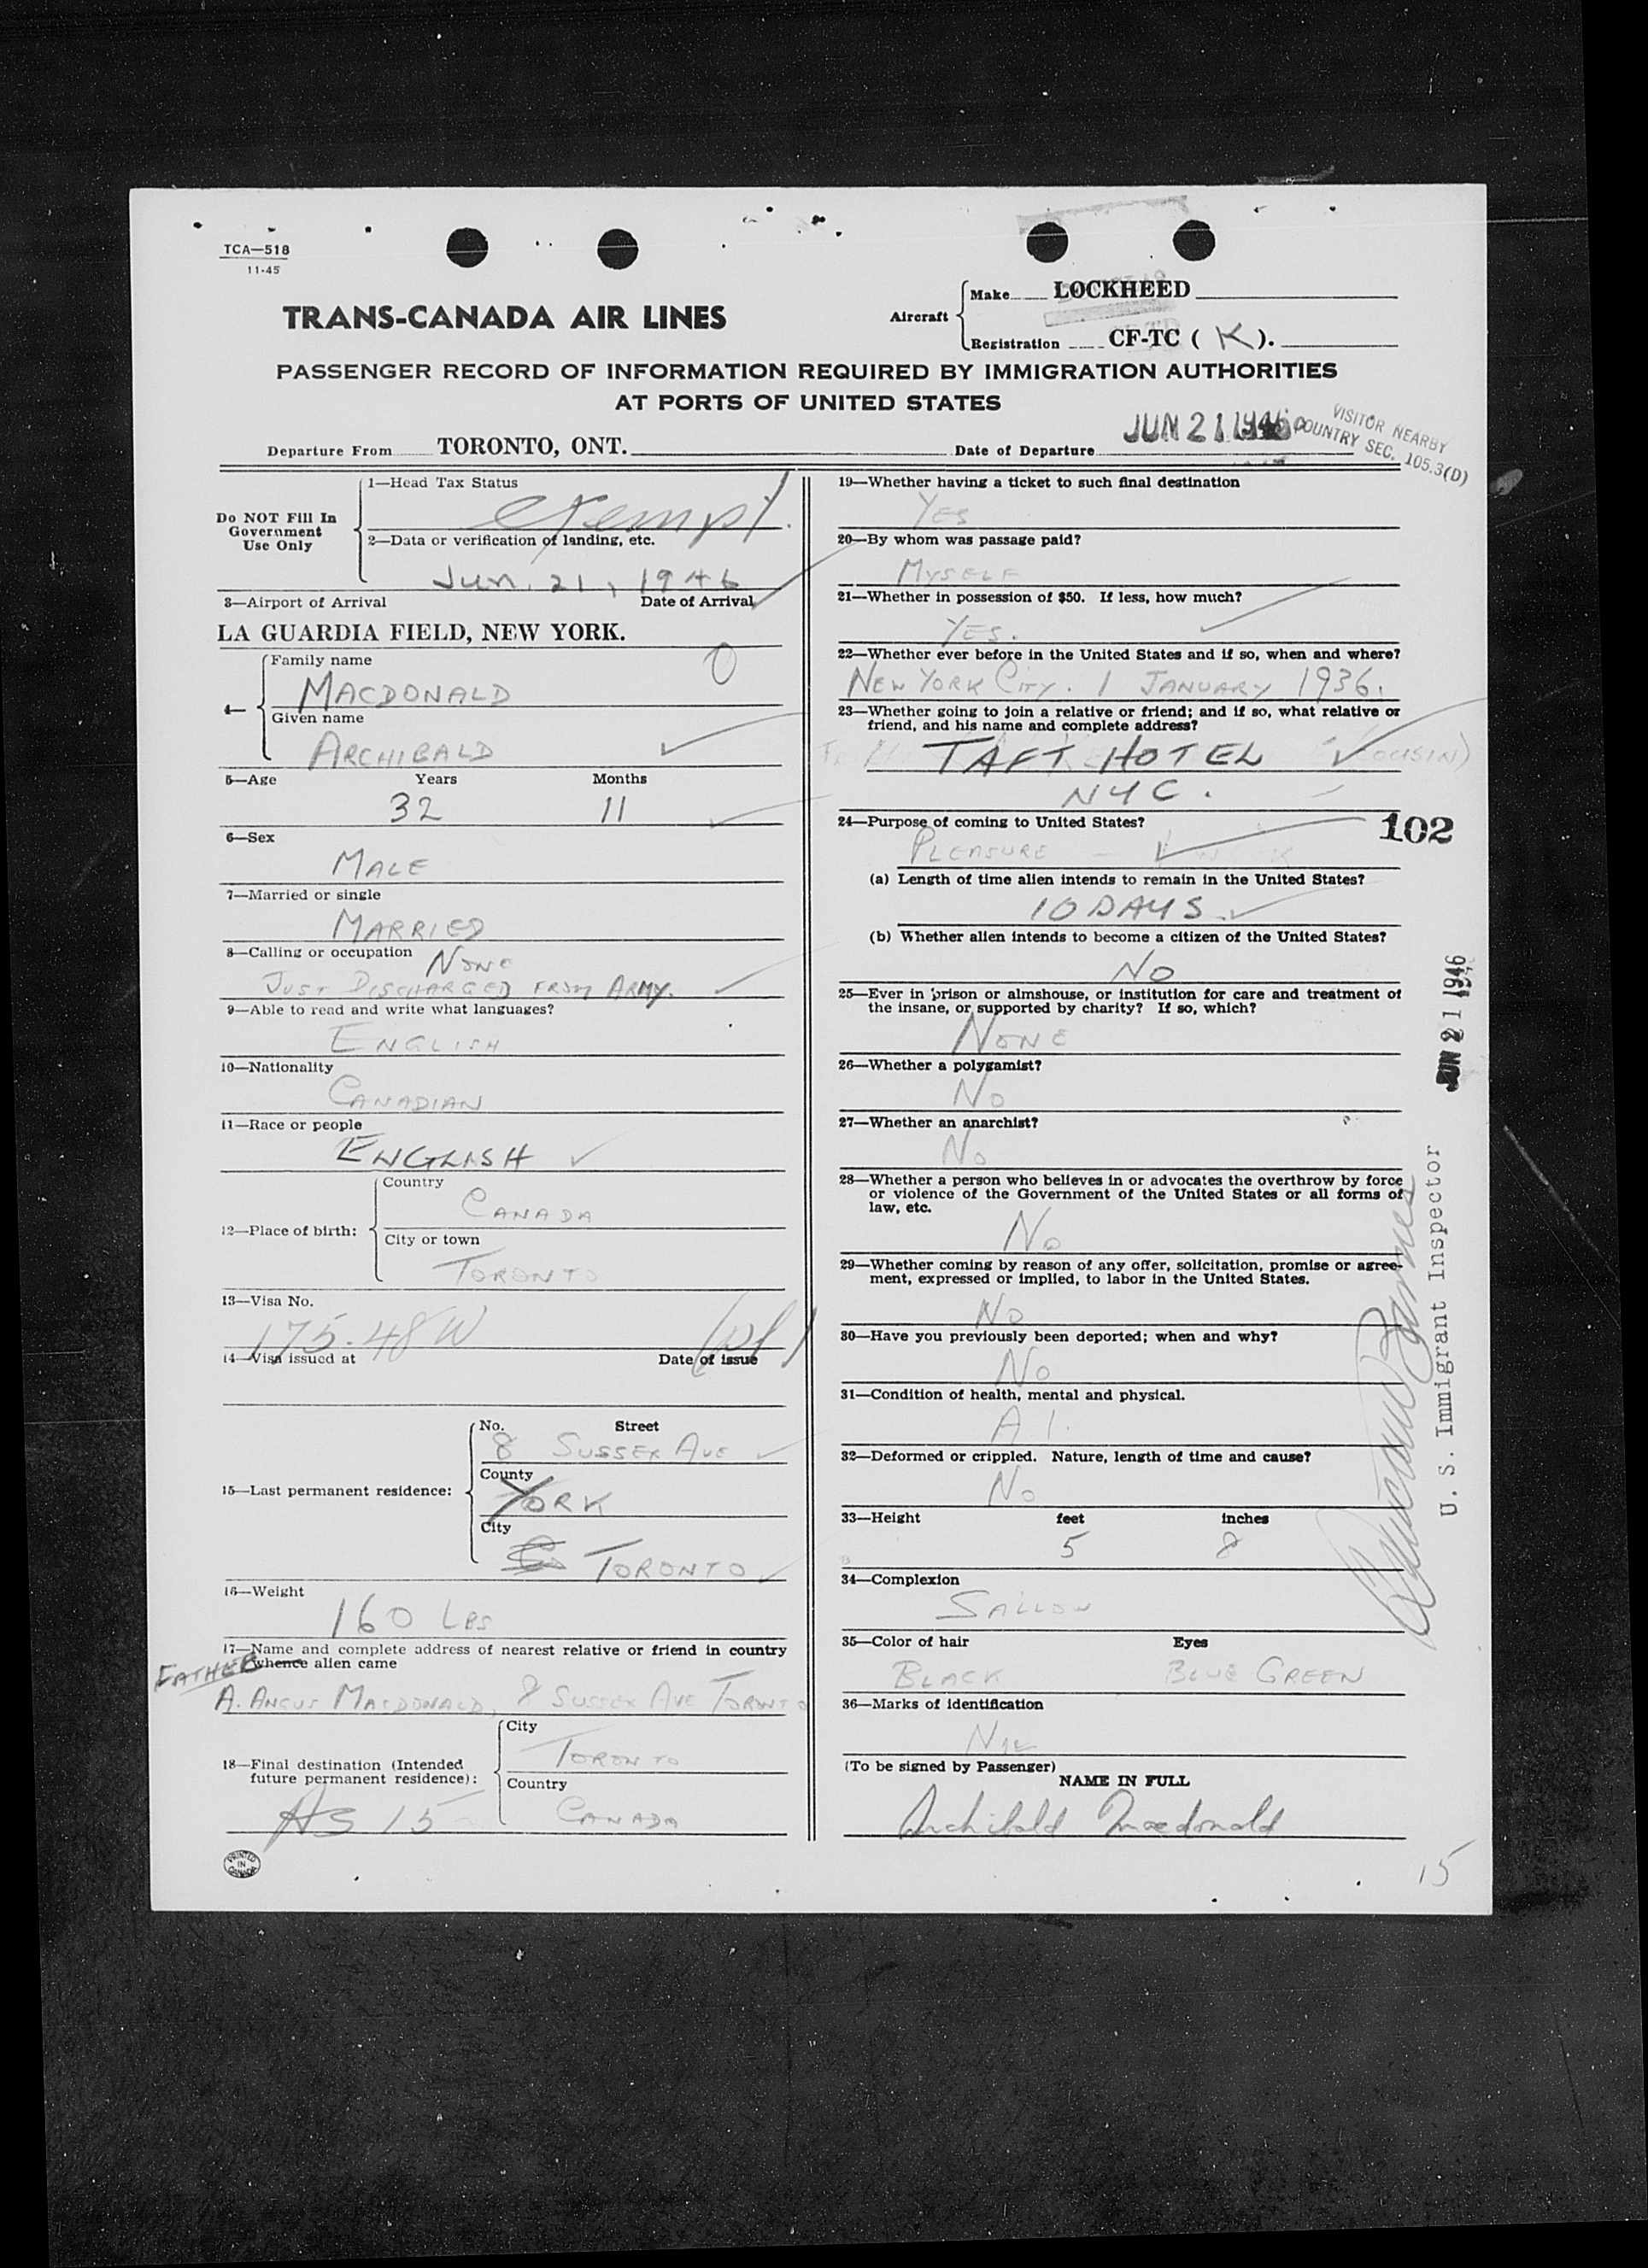 TCA—518
11-45
TRANS-CANADA AIR LINES
Aircraft
Make LOCKHEED
Registration CF-TC ( K ).
PASSENGER RECORD OF INFORMATION REQUIRED BY IMMIGRATION AUTHORITIES
AT PORTS OF UNITED STATES
Departure From TORONTO, ONT.
Date of Departure JUN 21 1946
VISITOR NEARBY
COUNTRY SEC. 105.3(D)
Do NOT Fill In
Government
Use Only
1—Head Tax Status
exempt.
2—Data or verification of landing, etc.
Jun. 21, 1946
3—Airport of Arrival Date of Arrival
LA GUARDIA FIELD, NEW YORK.
4—
Family name
MACDONALD
0
Given name
ARCHIBALD
5—Age Years Months
32 11
6—Sex
MALE
7—Married or single
MARRIED
8—Calling or occupation
NONE
JUST DISCHARGED FROM ARMY.
9—Able to read and write what languages?
ENGLISH
10—Nationality
CANADIAN
11—Race or people
ENGLISH
12—Place of birth:
Country
CANADA
City or town
TORONTO
13—Visa No.
175.48W
14—Visa issued at Date of issue
15—Last permanent residence:
No. Street
8 SUSSEX AVE
County
YORK
City
TORONTO
16—Weight
160 LBS
17—Name and complete address of nearest relative or friend in country
whence alien came
FATHER
A. ANGUS MACDONALD, 8 SUSSEX AVE TORONTO
18—Final destination (Intended
future permanent residence):
AS 15
City
TORONTO
Country
CANADA
PRINTED
IN
CANADA
19—Whether having a ticket to such final destination
YES
20—By whom was passage paid?
MYSELF
21—Whether in possession of $50. If less, how much?
YES.
22—Whether ever before in the United States and if so, when and where?
NEW YORK CITY. 1 JANUARY 1936.
23—Whether going to join a relative or friend; and if so, what relative or
friend, and his name and complete address?
TAFT HOTEL COUSIN)
NYC.
24—Purpose of coming to United States?
PLEASURE
102
(a) Length of time alien intends to remain in the United States?
10 DAYS
(b) Whether alien intends to become a citizen of the United States?
NO
25—Ever in prison or almshouse, or institution for care and treatment of
the insane, or supported by charity? If so, which?
NONE
26—Whether a polygamist?
NO
27—Whether an anarchist?
NO
28—Whether a person who believes in or advocates the overthrow by force
or violence of the Government of the United States or all forms of
law, etc.
NO
29—Whether coming by reason of any offer, solicitation, promise or agree-
ment, expressed or implied, to labor in the United States.
NO
30—Have you previously been deported; when and why?
NO
31—Condition of health, mental and physical.
A 1.
32—Deformed or crippled. Nature, length of time and cause?
NO
33—Height feet inches
5 8
34—Complexion
SALLOW
35—Color of hair Eyes
BLACK BLUE GREEN
36—Marks of identification
NIL
(To be signed by Passenger)
NAME IN FULL
Archibald Macdonald
JUN 21 1946
U. S. Immigrant Inspector
15